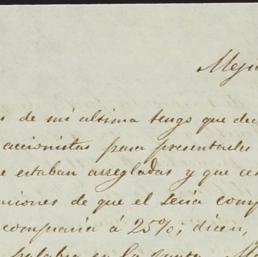 Meji
s de mi ultima tengo que dec
accionistas para presentarles
e estaban arregladas y que ce
niones de que el Seria comp
compania á 25%; dicen,
palabra en la